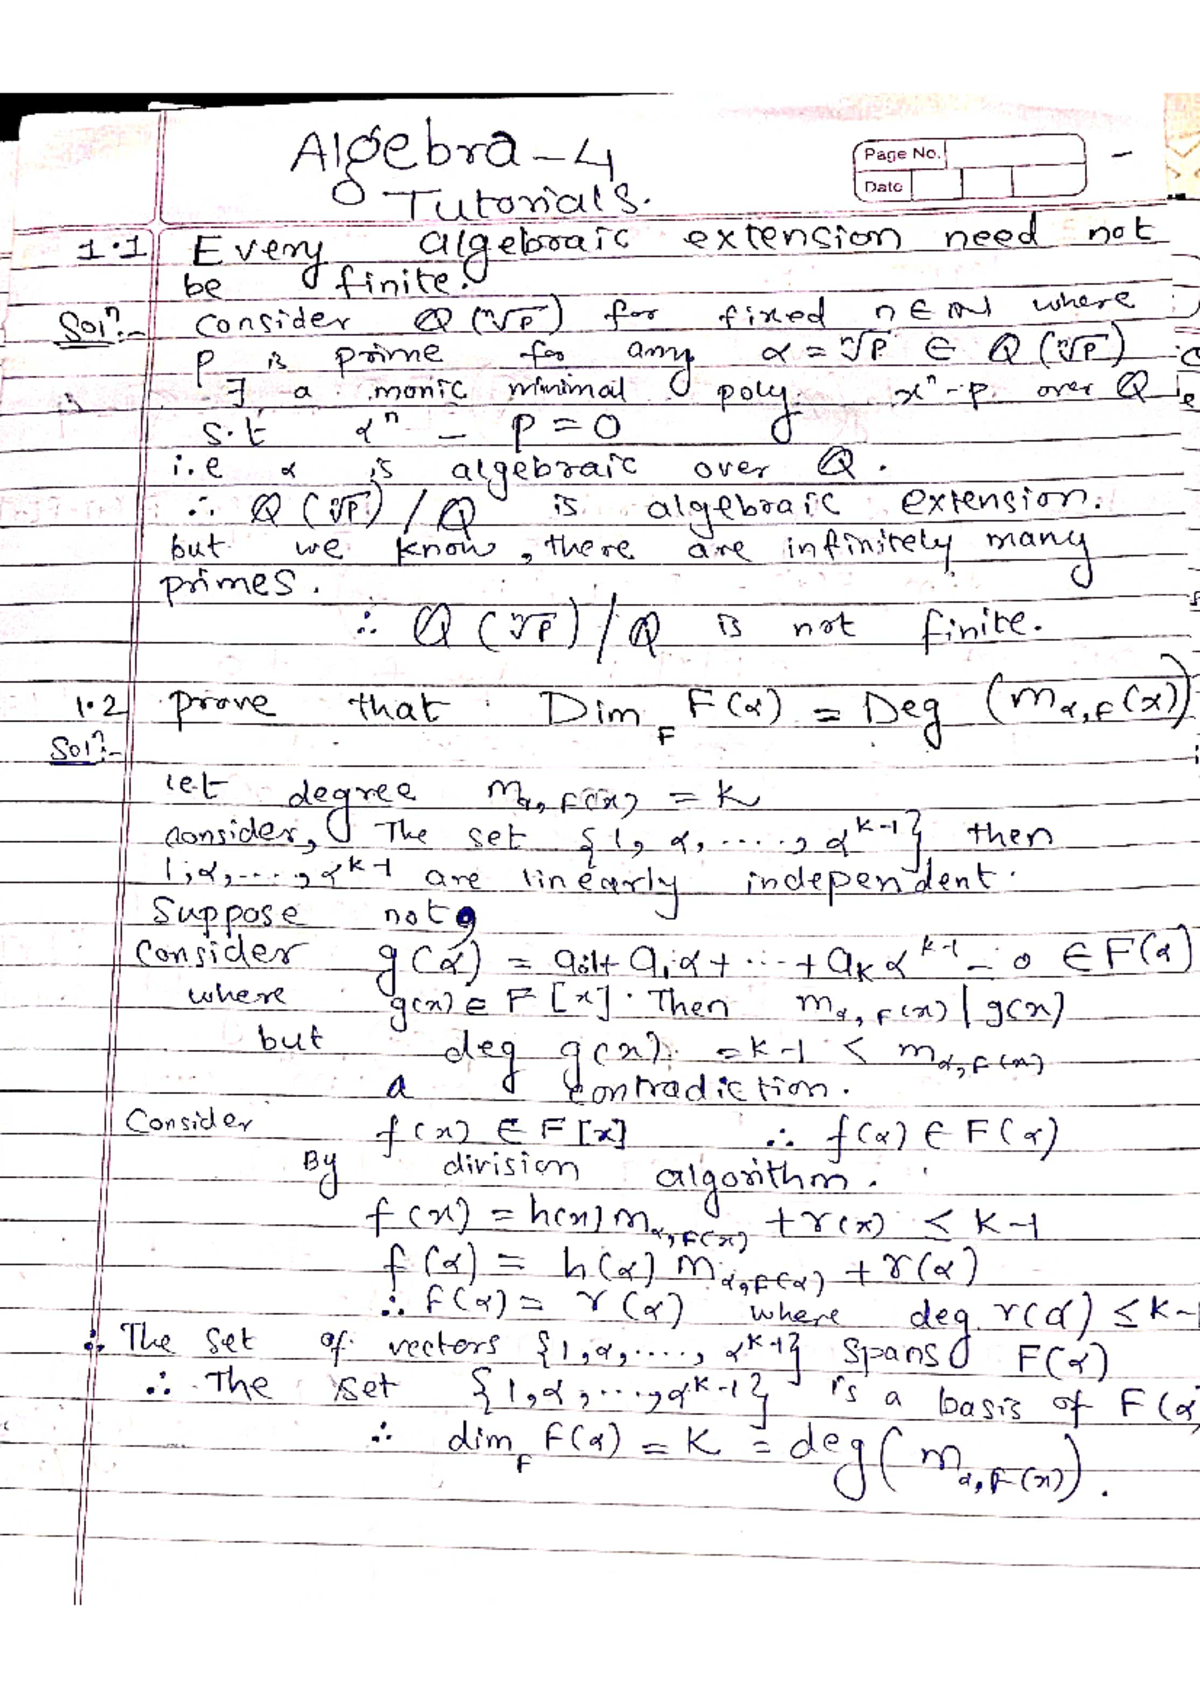 Algebra - 4
Tutorials.
Page No.
Date
1.1 Every algebraic extension need not
be finite.
Solⁿ:- Consider Q(ⁿ√p) for fixed n ∈ IN where
p is prime for any α = ⁿ√p ∈ Q(ⁿ√p)
∃ a monic minimal poly. xⁿ - p over Q
s.t αⁿ - p = 0
i.e α is algebraic over Q.
∴ Q(ⁿ√p)/Q is algebraic extension.
but we know, there are infinitely many
primes.
∴ Q(ⁿ√p)/Q is not finite.
1.2 prove that Dim_F F(α) = Deg (m_α,F(x))
Solⁿ:-
let degree m_α,F(x) = K
consider, The set {1, α, ...., α^K-1} then
1, α, ..., α^K-1 are linearly independent.
Suppose not,
Consider g(α) = a₀1 + a₁α + ... + a_K α^K-1 = 0 ∈ F(α)
where g(x) ∈ F[x]. Then m_α,F(x) | g(x)
but deg g(x) = K-1 < m_α,F(x)
a contradiction.
Consider f(x) ∈ F[x] ∴ f(α) ∈ F(α)
By division algorithm.
f(x) = h(x) m_α,F(x) + r(x) ≤ K-1
f(α) = h(α) m_α,F(α) + r(α)
∴ f(α) = r(α) where deg r(α) ≤ K-1
∴ The set of vectors {1, α, ...., α^K-1} spans F(α)
∴ The set {1, α, ..., α^K-1} is a basis of F(α)
∴ dim_F F(α) = K = deg(m_α,F(x)).